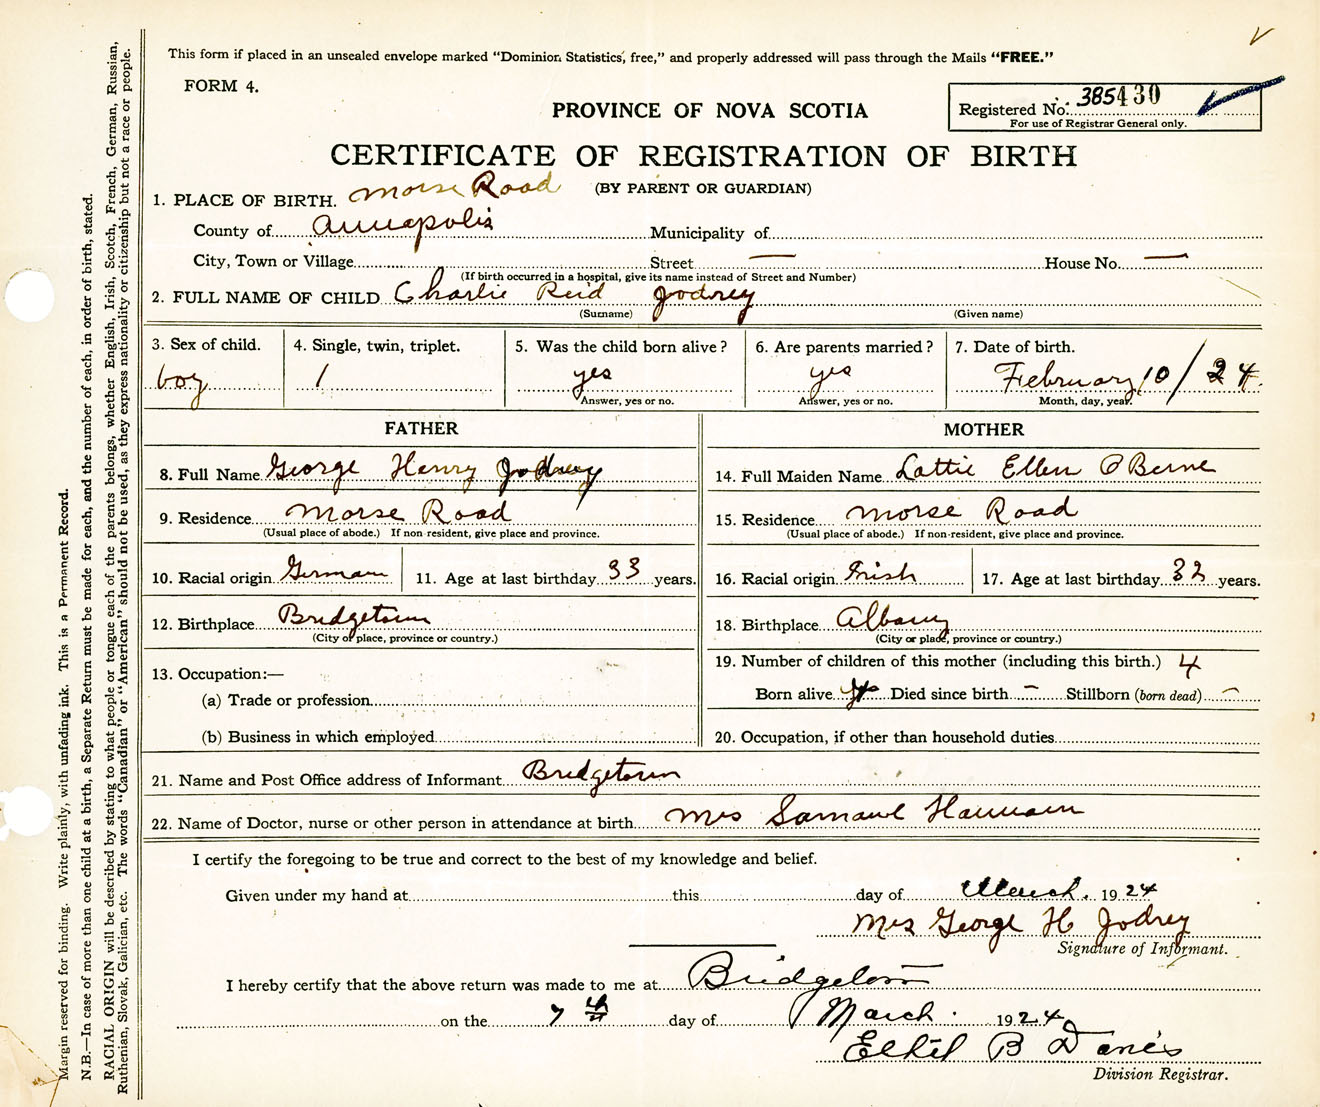 This form if placed in an unsealed envelope marked "Dominion Statistics, free," and properly addressed will pass through the Mails "FREE."
FORM 4.
PROVINCE OF NOVA SCOTIA
Registered No. 385430
For use of Registrar General only.
CERTIFICATE OF REGISTRATION OF BIRTH
(BY PARENT OR GUARDIAN)
1. PLACE OF BIRTH. Morse Road
County of Annapolis Municipality of
City, Town or Village Street — House No. —
(If birth occurred in a hospital, give its name instead of Street and Number)
2. FULL NAME OF CHILD Charlie Reid Jodrey
(Surname) (Given name)
3. Sex of child. 4. Single, twin, triplet. 5. Was the child born alive? 6. Are parents married? 7. Date of birth.
boy 1 yes yes February 10/24.
Answer, yes or no. Answer, yes or no. Month, day, year.
FATHER MOTHER
8. Full Name George Henry Jodrey 14. Full Maiden Name Lottie Ellen O Berne
9. Residence Morse Road 15. Residence Morse Road
(Usual place of abode.) If non-resident, give place and province. (Usual place of abode.) If non-resident, give place and province.
10. Racial origin German 11. Age at last birthday 33 years. 16. Racial origin Irish 17. Age at last birthday 32 years.
12. Birthplace Bridgetown 18. Birthplace Albany
(City or place, province or country.) (City or place, province or country.)
13. Occupation:— 19. Number of children of this mother (including this birth.) 4
(a) Trade or profession Born alive 4 Died since birth – Stillborn (born dead) –
(b) Business in which employed 20. Occupation, if other than household duties
21. Name and Post Office address of Informant Bridgetown
22. Name of Doctor, nurse or other person in attendance at birth Mrs Samuel Hannam
I certify the foregoing to be true and correct to the best of my knowledge and belief.
Given under my hand at this day of March. 1924
Mrs George H Jodrey
Signature of Informant.
I hereby certify that the above return was made to me at Bridgetown
on the 7th day of March. 1924
Ethel B Daniels
Division Registrar.
Margin reserved for binding. Write plainly, with unfading ink. This is a Permanent Record.
N.B.—In case of more than one child at a birth, a Separate Return must be made for each, and the number of each, in order of birth, stated.
RACIAL ORIGIN will be described by stating to what people or tongue each of the parents belongs, whether English, Irish, Scotch, French, German, Russian,
Ruthenian, Slovak, Galician, etc. The words "Canadian" or "American" should not be used, as they express nationality or citizenship but not a race or people.